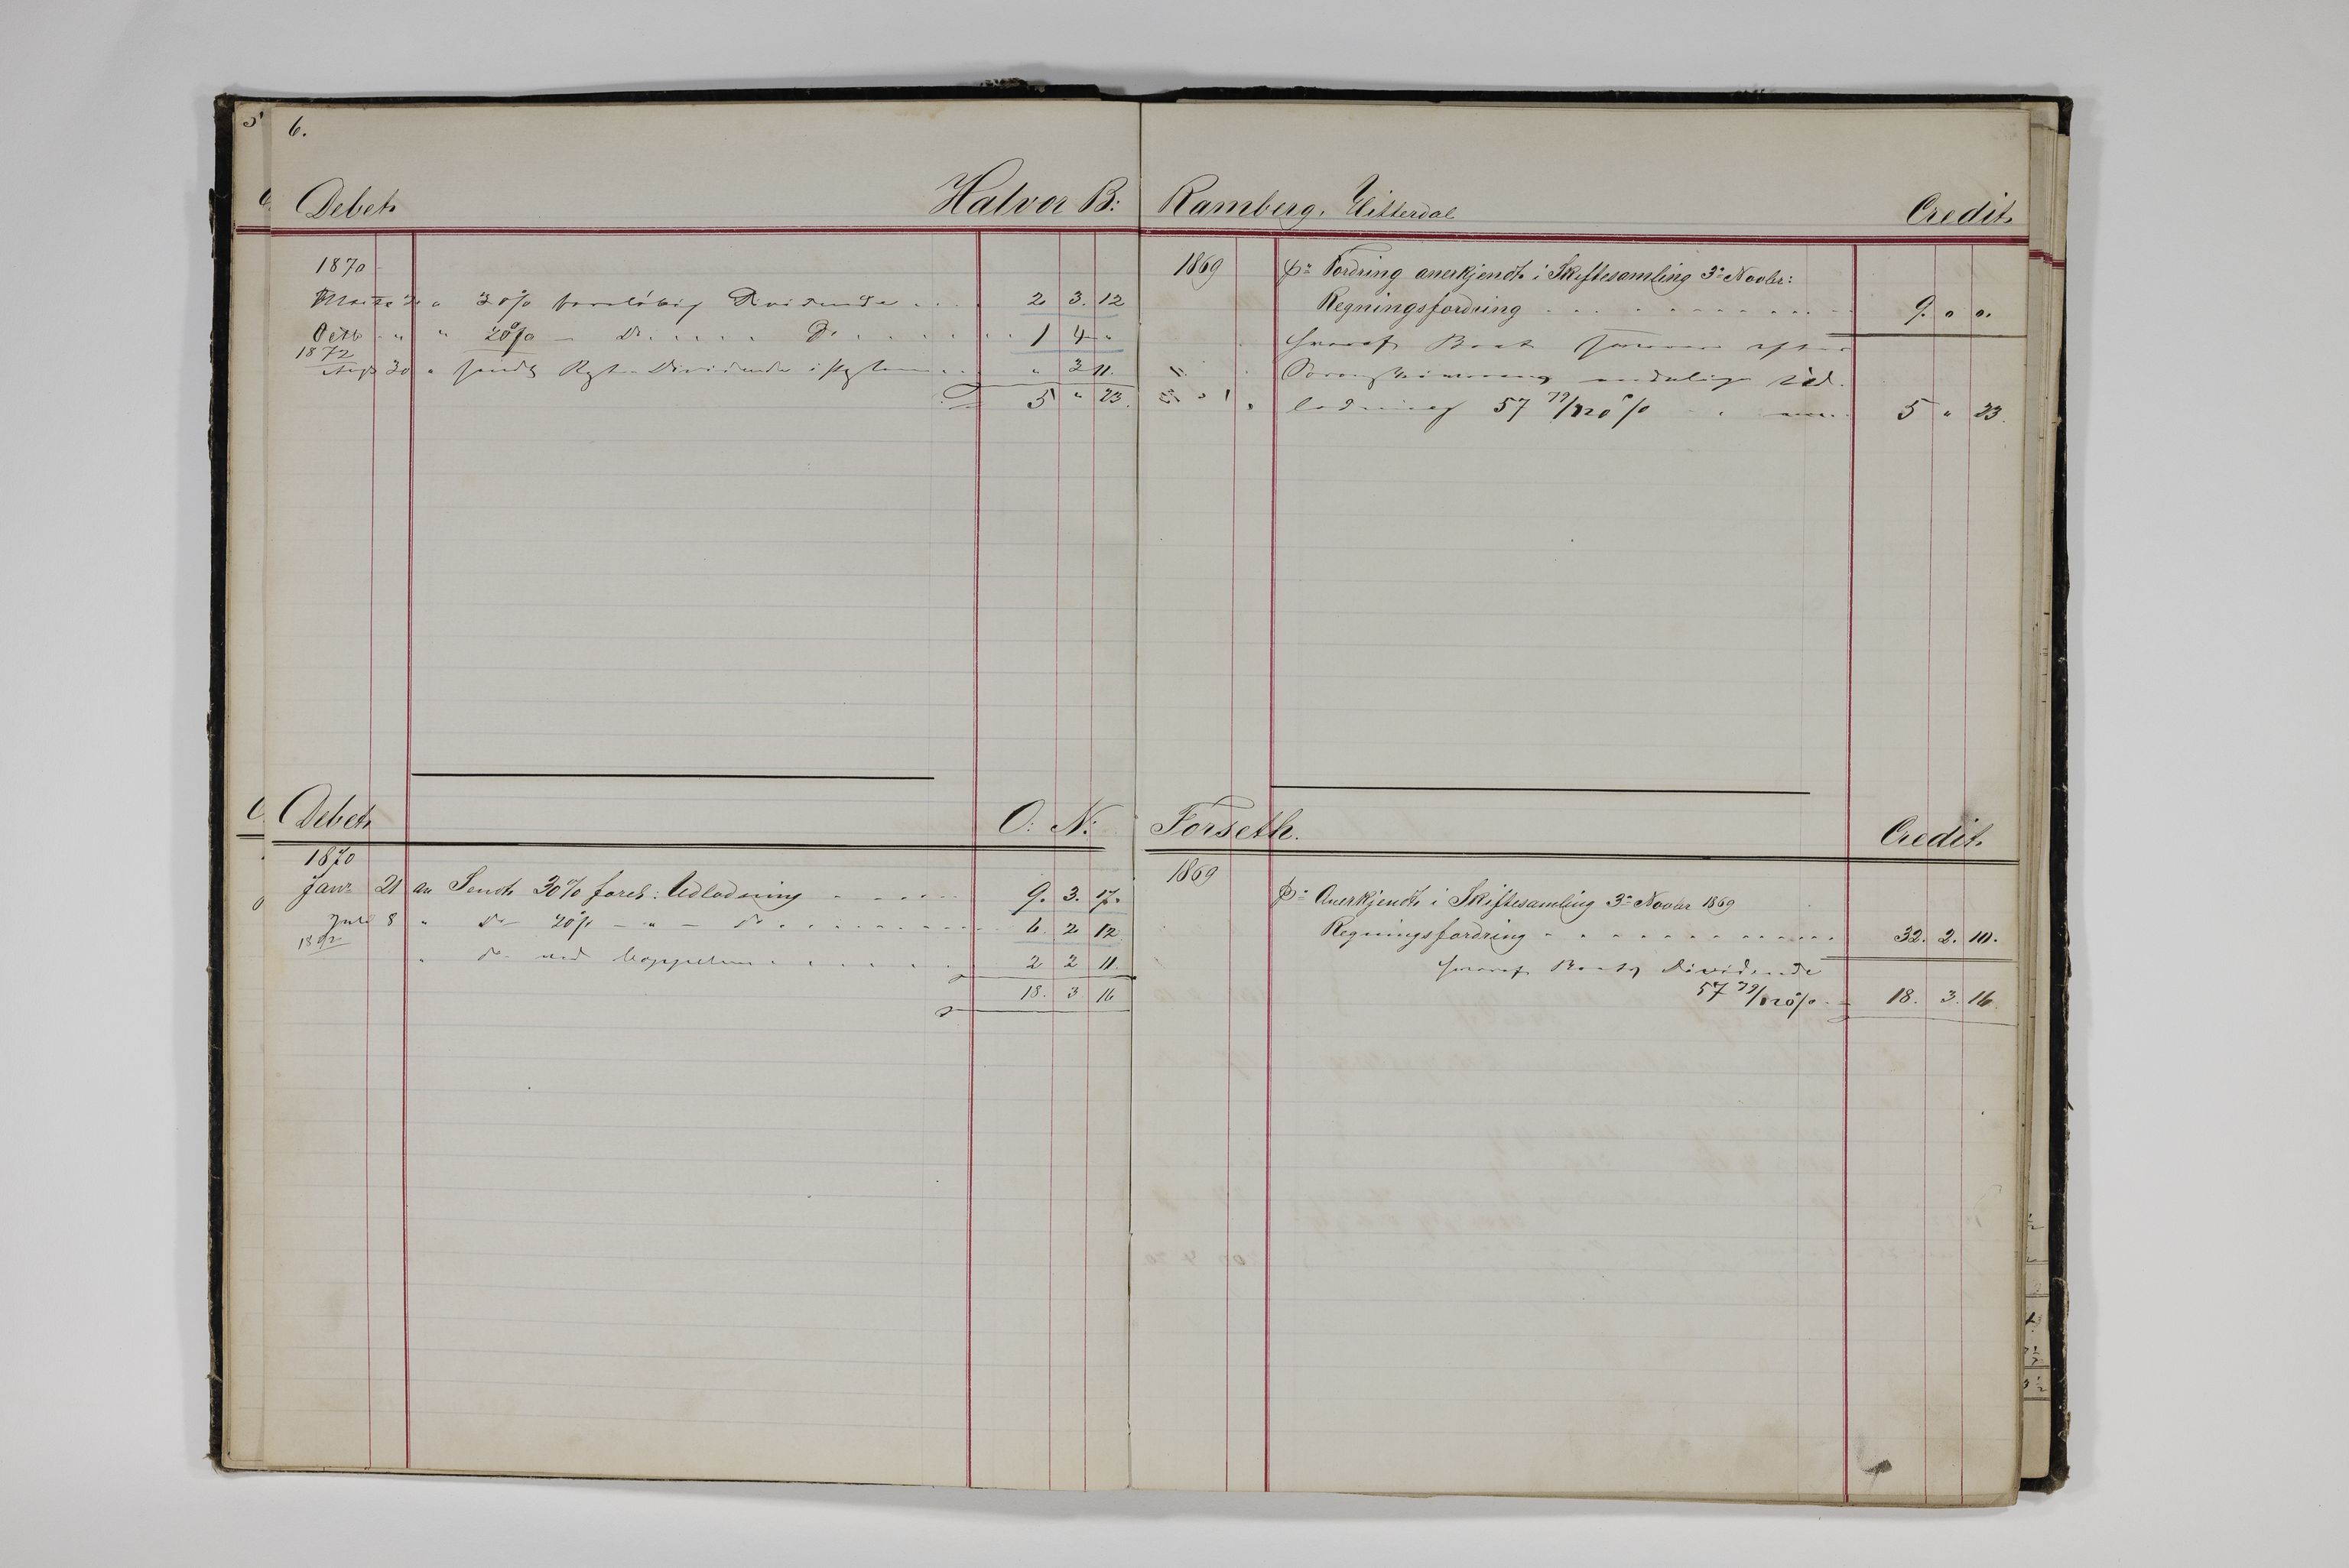 6.
Debet. Halvor B: Ramberg. Hitterdal Credit.
1870
30% foreløbig Dividende 2 3. 12
Octb " " 20% — Do Do 1 4 "
1872
30 " Dividende " 2 11.
5 " 23.
1869
Pr Fordring anerkjendt i Skiftesamling 3e Novbr:
Regningsfordring 9. " ".
hvoraf
endelige Ud-
lodning 57 79/120 % 5 " 23.
Debet. O: N: Forseth. Credit.
1870
Janr 21 an Sendt 30% forel: Udlodning 9. 3. 17.
8 " do 20% — " — do 6. 2 12
1872
" do ved 2 2 11.
18. 3 16
1869
Pr Anerkjendt i Skiftesamling 3e Novbr 1869
Regningsfordring 32. 2. 10.
hvoraf Dividende
57 79/120 % 18. 3. 16.